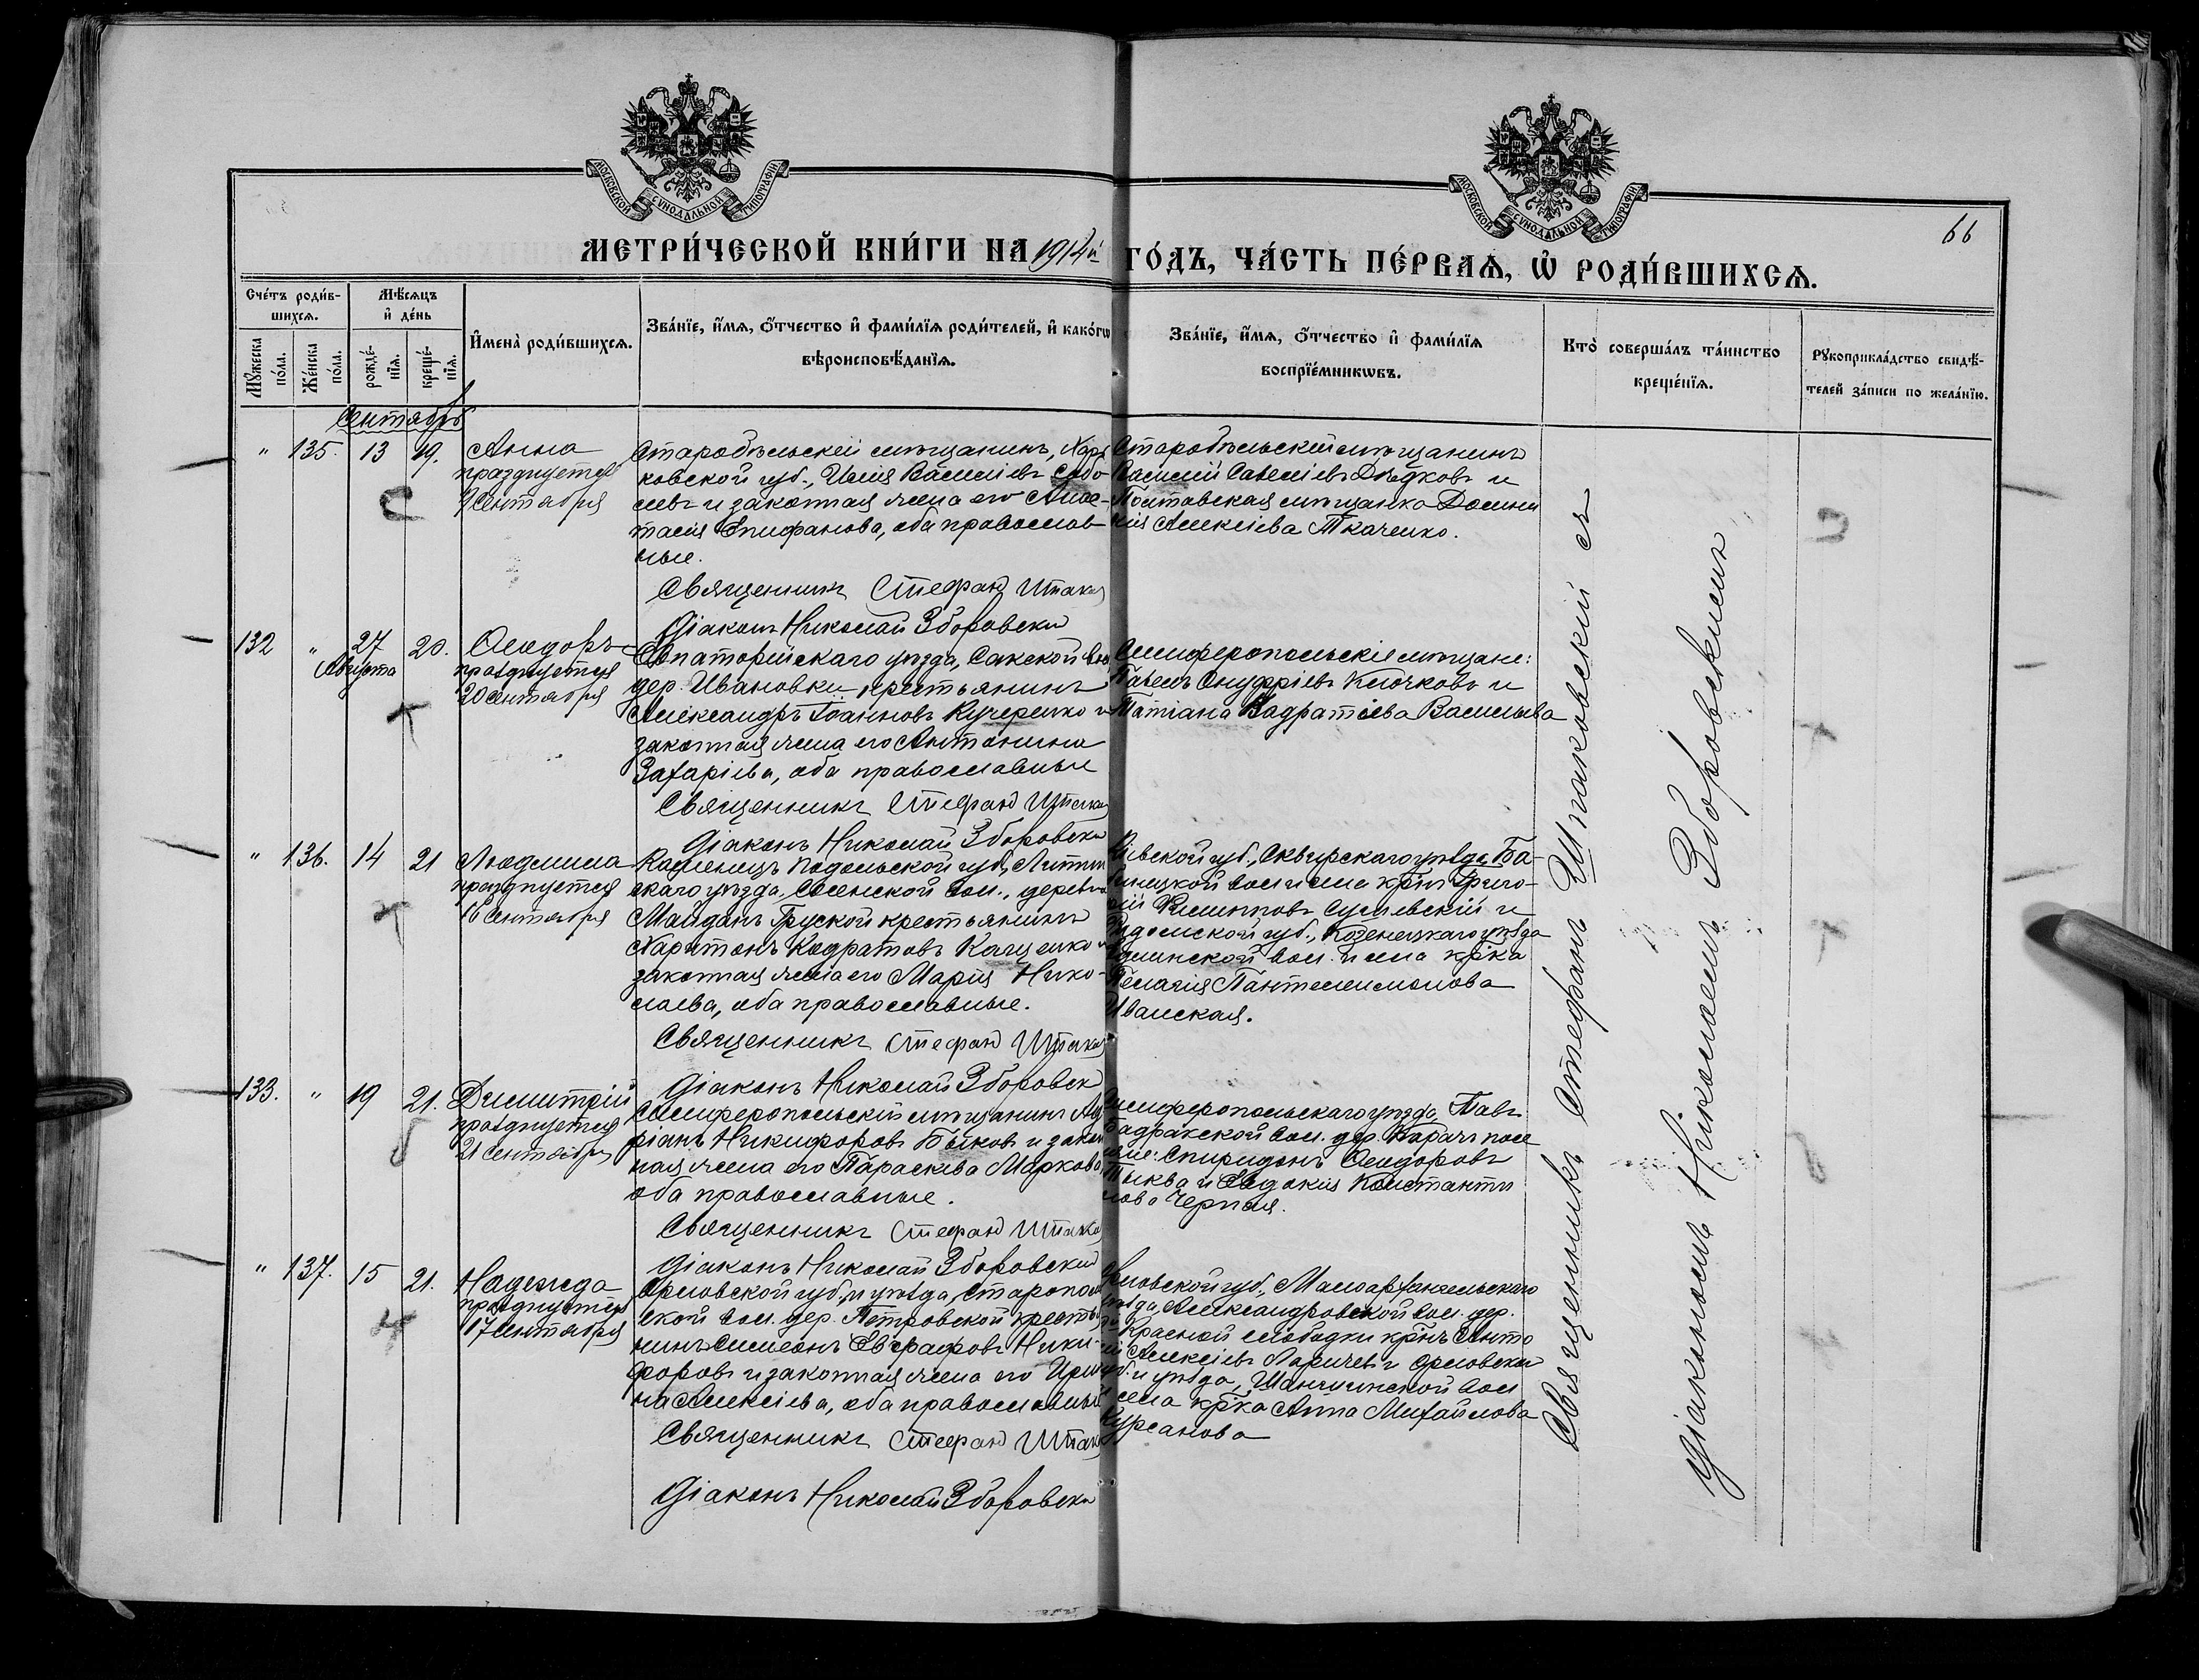 МОСКОВСКОЙ СѴНОДАЛЬНОЙ ТИПОГРАФІИ
МОСКОВСКОЙ СѴНОДАЛЬНОЙ ТИПОГРАФІИ
66
МЕТРИ́ЧЕСКОЙ КНИ́ГИ НА 1914й ГО́ДЪ, ЧА́СТЬ ПЕ́РВАѦ, Ѡ҆ РОДИ́ВШИХСѦ.
Сче́тъ роди́в-
шихсѧ.
Мꙋ́жеска по́ла.
Же́нска по́ла.
Мѣ́сѧцъ и҆ де́нь
рожде́-нїѧ.
креще́-нїѧ.
И҆мена̀ роди́вшихсѧ.
Зва́нїе, и҆́мѧ, ѻ҆́тчество и҆ фами́лїѧ роди́телей, и҆ како́гѡ
вѣроисповѣ́данїѧ.
Зва́нїе, и҆́мѧ, ѻ҆́тчество и҆ фами́лїѧ
воспрїе́мникѡвъ.
Кто̀ соверша́лъ та́инство
креще́нїѧ.
Рꙋкоприкла́дство свидѣ́-
телей за́писи по жела́нїю.
Сентябрь
" 135. 13 19.
Анна
празднуется
9 Сентября
Старобѣльскій мѣщанинъ, Харь
ковской губ., Илія Василіевъ Собо
левъ и законная жена его Анас-
тасія Епифанова, оба православ
ные.
Священникъ Стефанъ Шпаков
Діаконъ Николай Зборовски
Старобѣльскій мѣщанинъ
Василій Савеліевъ Дѣдковъ и
Полтавская мѣщанка Домни
кія Алексіева Ткаченко.
132 " 27 Августа 20.
Ѳеодоръ
празднуется
20 Сентября
Евпаторійскаго уѣзда, Сакской вол
дер. Ивановки крестьянинъ
Александръ Іоанновъ Кучеренко и
законная жена его Антонина
Захаріева, оба православные
Священникъ Стефанъ Шпаков
Діаконъ Николай Зборовски
Симферопольскіе мѣщане:
Павелъ Онуфріевъ Клочковъ и
Татіана Кадратіева Васильева
" 136. 14 21
Людмила
празднуется
16 Сентября
Каменецъ Подольской губ, Литин
скаго уѣзда, Сосенской вол., деревни
Майданъ Грускoй крестьянинъ
Харитонъ Кодратовъ Каценко и
законная жена его Марія Нико-
лаева, оба православные.
Священникъ Стефанъ Шпаков
Діаконъ Николай Зборовск
Кіевской губ., Сквирскаго уѣзда, Ба-
вол и села крiнъ Григо-
рій Филипповъ Сулевскій и
Радомской губ., Козенецкаго уѣзда
вол. и села крiка
Пелагія Пантелеимонова
Иванская.
133. " 19 21.
Димитрій
празднуется
21 Сентября
Симферопольскій мѣщанинъ Ад
ріанъ Никифоровъ Быковъ и закон
ная жена его Параскева Маркова
оба православные.
Священникъ Стефанъ Шпако
Діаконъ Николай Зборовский
Симферопольскаго уѣзда, Тавъ
Бадракской вол. дер. Карачъ посе
ляне: Спиридонъ Ѳеодоровъ
Тыква и Евдокія Константи
нова Черная.
" 137. 15 21.
Надежда
празднуется
17 Сентября
Орловской губ., и уѣзда, Старополь
ской вол. дер. Петровской крестья
нинъ Симеонъ Евграфовъ Ники-
форовъ и законная жена его Ири
на Алексіева, оба православные
Священникъ Стефанъ Шпак
Діаконъ Николай Зборовски
Орловской губ., Малоархангельскаго
уѣзда, Александровской вол. дер.
Красной слободки крiнъ Анто
ній Алексіевъ Ларичевъ и Орловской
губ. и уѣзда, вол
села крiка Анна Михайлова
Курсанова
Священникъ Стефанъ Шпаковскій съ
Діакономъ Николаемъ Зборовскимъ